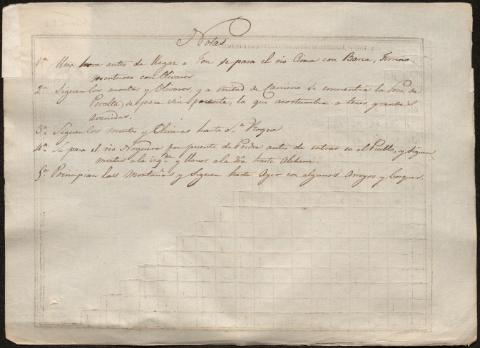 Notas
1ª Una hora antes de llegar a Fon se pasa el rio Cinca con Barca, terreno
montuoso con Olivares
2ª Siguen los montes y Olivares, y a mitad de Camino se encuentra la
de Peralta, se pasa sin puente, la que acostumbra a tener grandes
avenidas.
3ª Siguen los montes y Olivares hasta
4ª Se pasa el rio Noguera por puente de Piedra antes de entrar en el Pueblo, y siguen
montes a la izqª y llano a la dha hasta
5ª Principian las Montañas y siguen hasta Ager con algunos Arroyos y